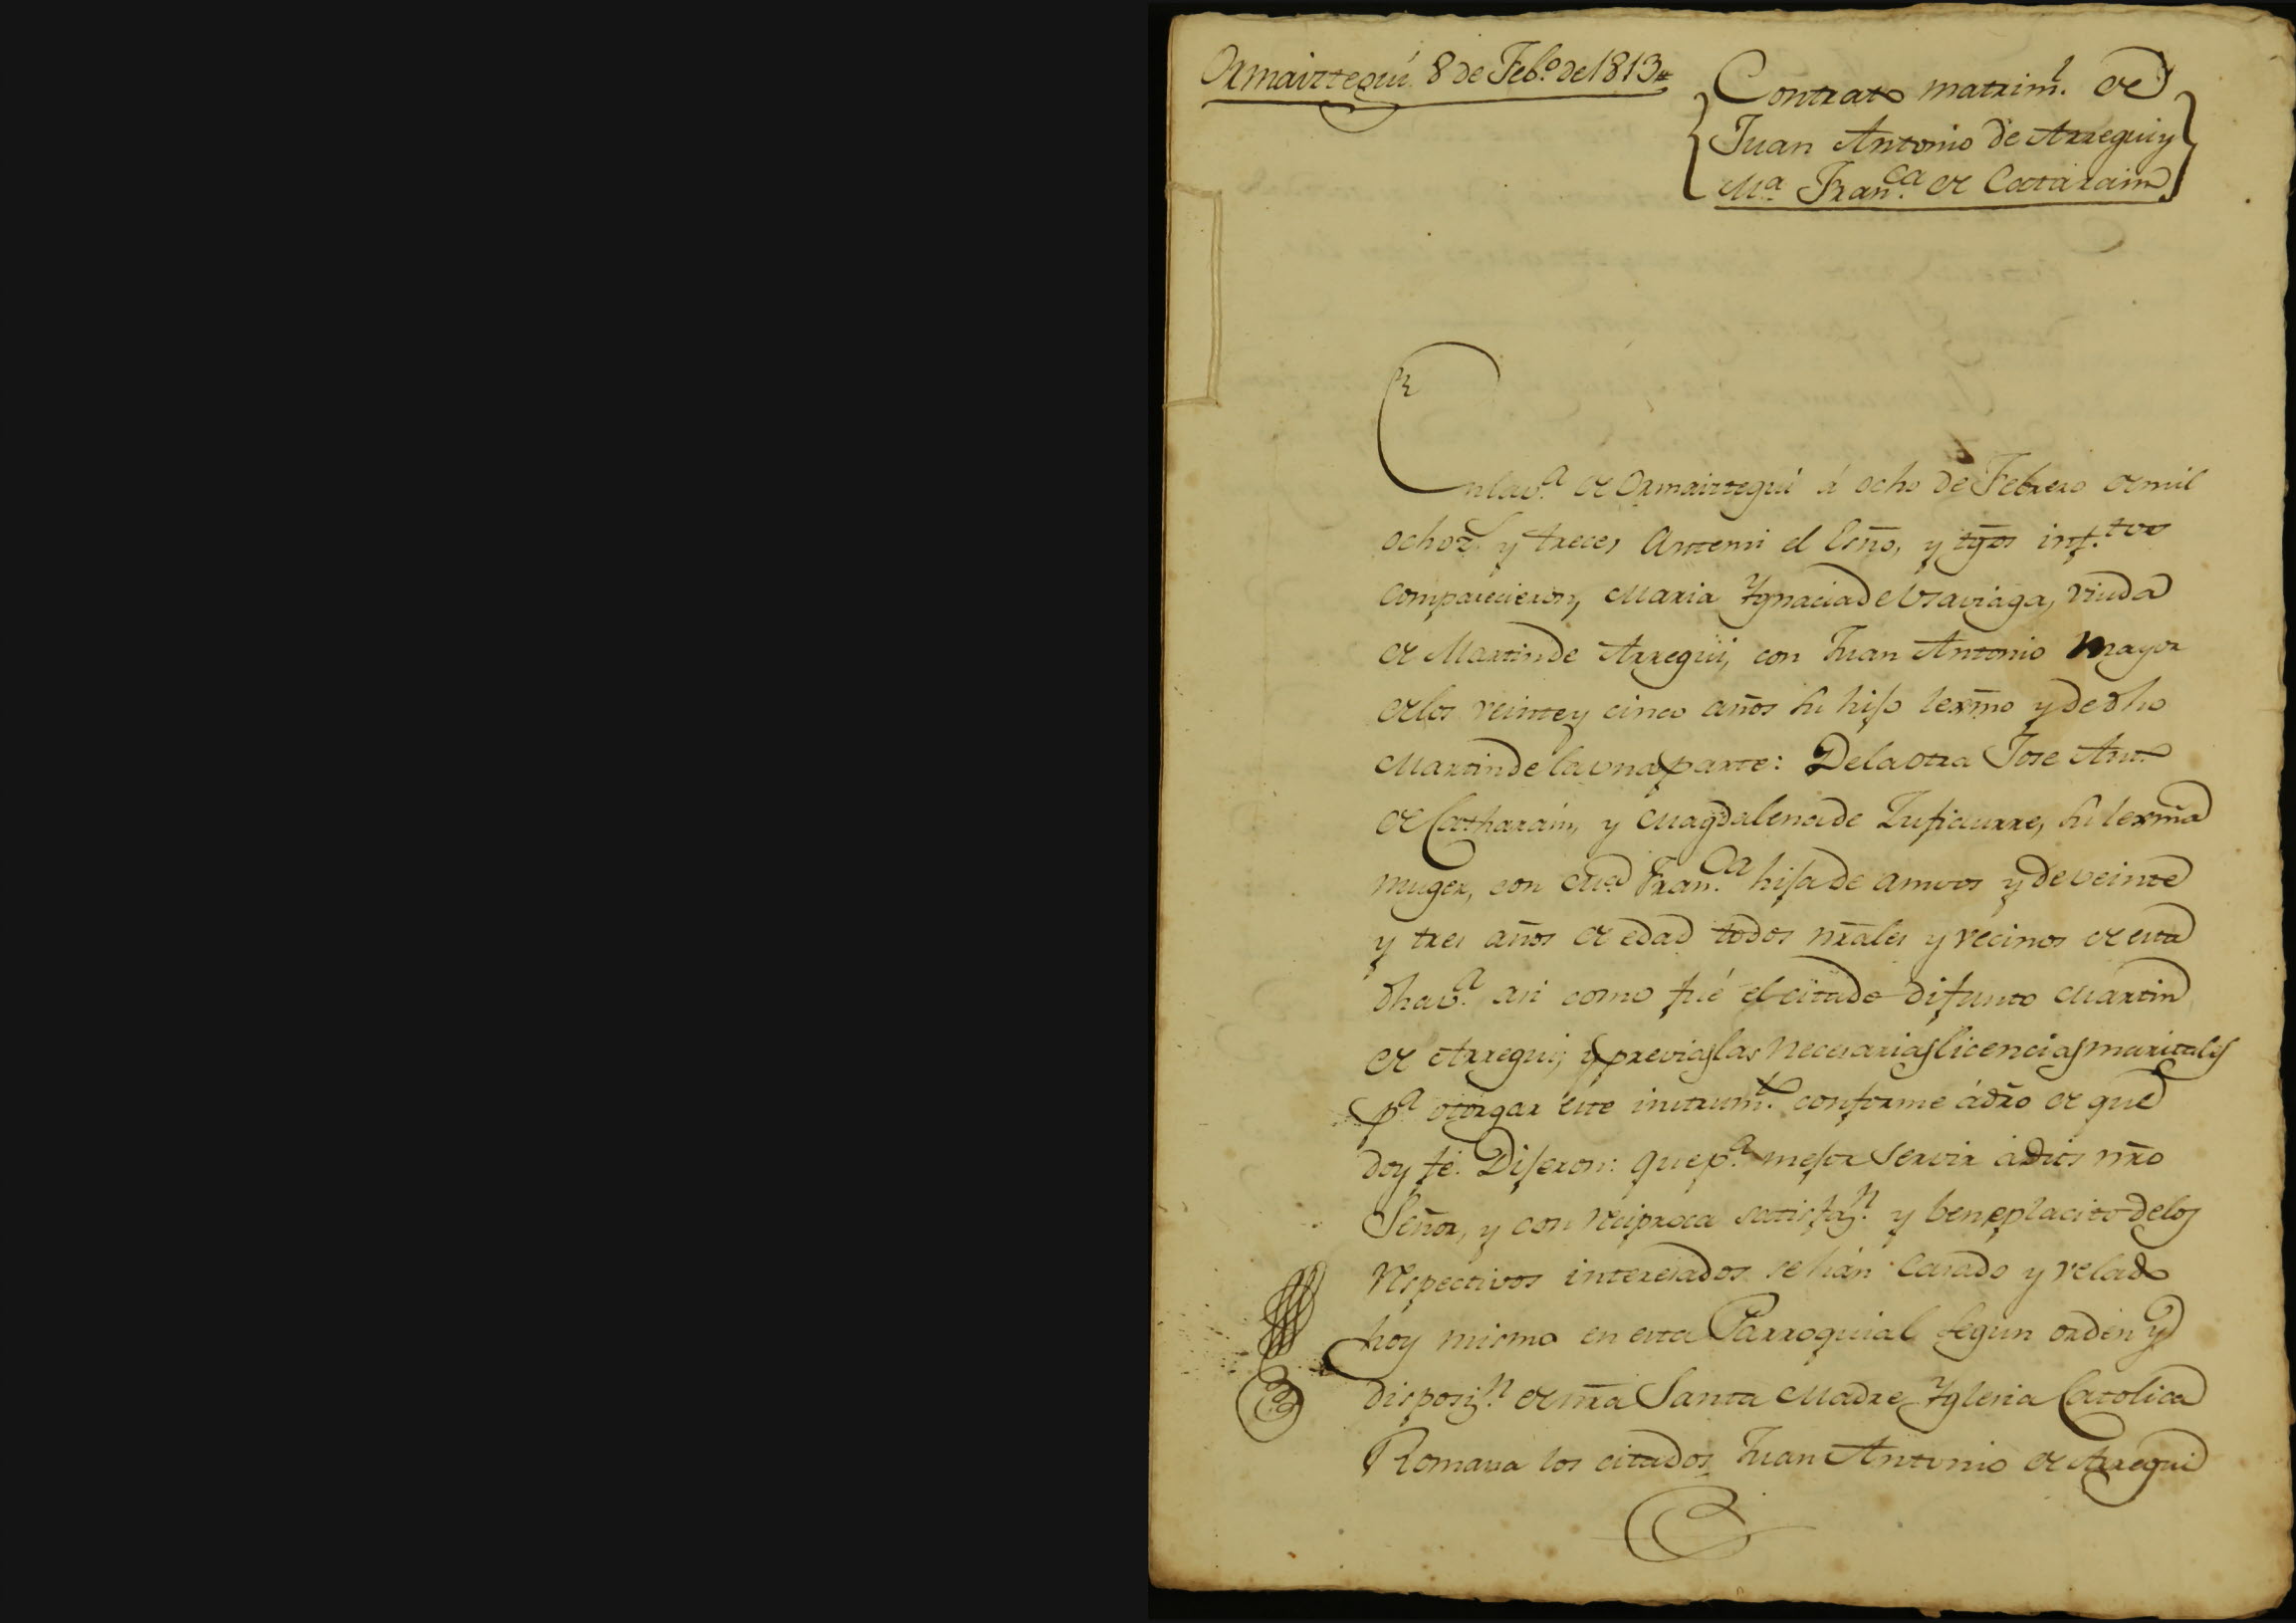 Ormaiztegui 8 de Feb.º de 1813
Contrato matrim.l de
Juan Antonio de Arregui y
M.a Fran.ca de Catarain
En la v.a de Ormaiztegui á ocho de Febrero de mil
ochoz.s y trece, Antemi el Esño, y tgõs inf.tos
comparecieron, Maria Ygnacia de Usaviaga, viuda
de Martin de Arregui, con Juan Antonio mayor
de los veinte y cinco años su hijo lexm̃o y de dho
Martin de la una parte: De la otra Jose Ant.º
de Catharain, y Magdalena de Zufiaurre, su lexm̃a
muger, con M.a Fran.ca hija de amvos y de veinte
y tres años de edad todos nr̃ales y vecinos de esta
dha v.a asi como fué el citado difunto Martin
de Arregui, y previas las necesarias licencias maritales
p.a otorgar este instrum.to conforme á dr̃o de que
doy fé. Dijeron: que p.a mejor servir á Dios nr̃o
Señor, y con reciproca satisfaz.n y beneplacito de los
respectivos interesados se hán casado y velado
hoy mismo en esta Parroquial segun orden y
disposiz.n de nr̃a Santa Madre Yglesia Catolica
Romana los citados Juan Antonio de Arregui